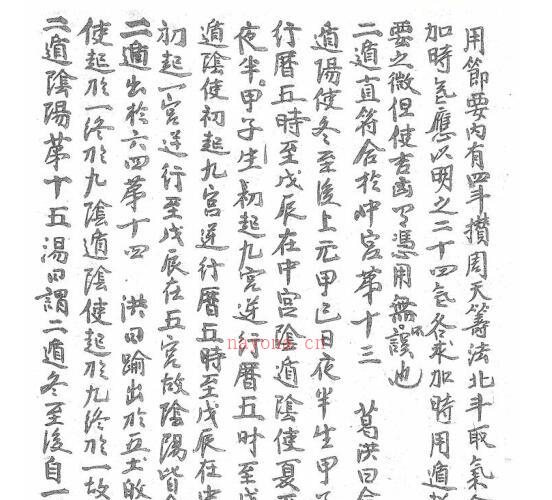 用節要內有四斗攢周天籌法北斗取氣
加時氣應以明之二十四氣冬求加時用遁
雲之微但使吉凶了憑用無誤也
二遁直符合於中宮第十三 葛洪曰
遁陽使冬至後上元甲己日夜半生甲子
行曆五時至戊辰在中宮陰遁陰使夏至
夜半甲子生初起九宮逆行曆五时至戊
遁陰使初起九宮逆行曆五時至戊辰在
初起一宮逆行至戊辰在五宮故陰陽皆自
二遁出於六四第十四 洪曰踰出於五土故
使起於一终於九陰遁陰使起於九终於一故
二遁陰陽第十五湯曰謂二遁冬至後自一
nayona.cn